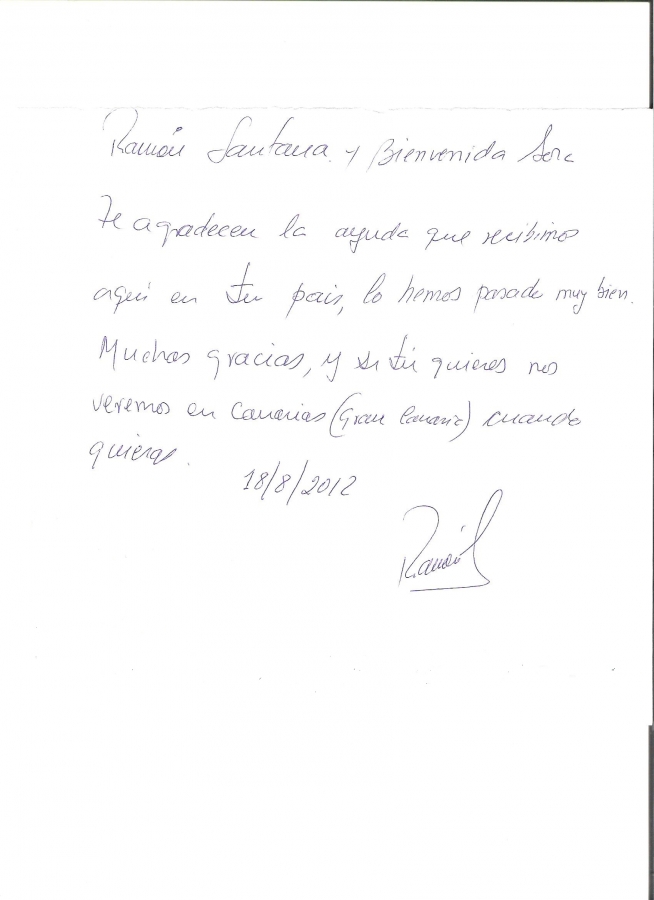 Ramón Santana y Bienvenida
Te agradecen la ayuda que recibimos
aquí en tu pais, lo hemos pasado muy bien.
Muchas gracias, y si tú quieres nos
veremos en Canarias (Gran Canaria) cuando
quieras.
18/8/2012
Ramón